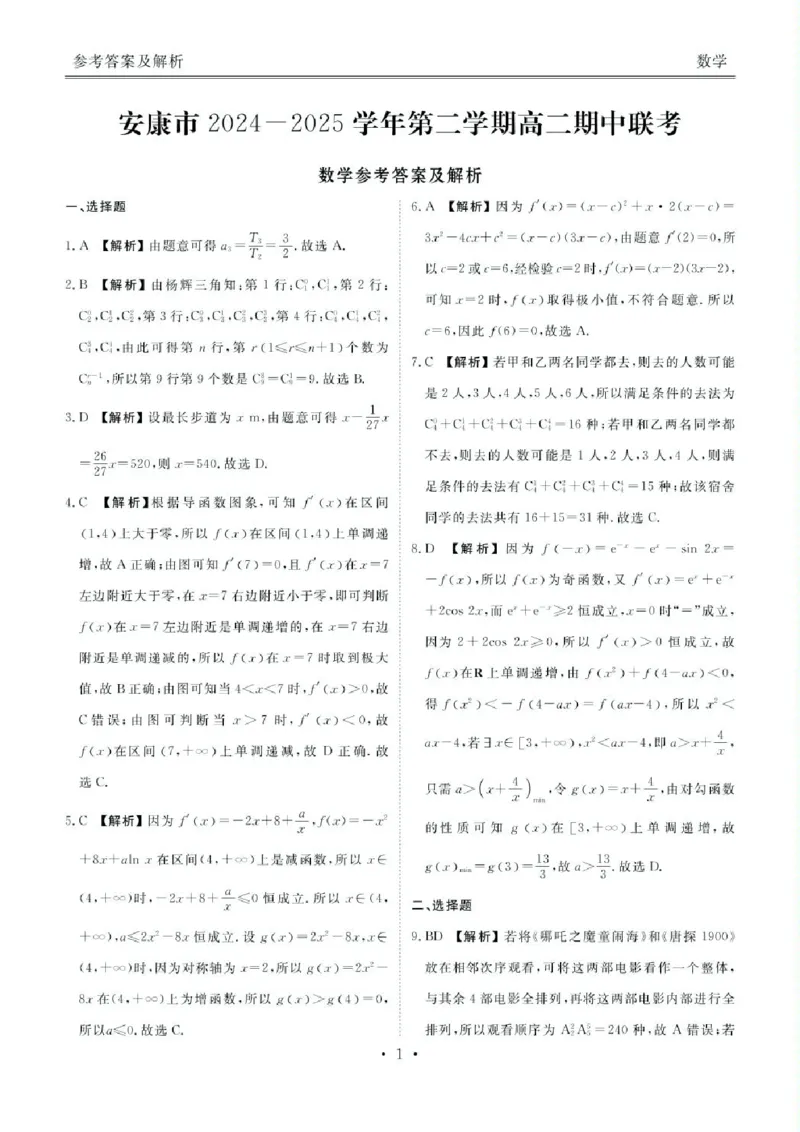 参考答案及解析 数学
安康市 2024—2025 学年第二学期高二期中联考
数学参考答案及解析
一、选择题
1. A 【解析】由题意可得 a₃=T₃/T₂=3/2.故选 A.
2. B 【解析】由杨辉三角知:第 1 行:C₁⁰,C₁¹,第 2 行:
C₂⁰,C₂¹,C₂²,第 3 行:C₃⁰,C₃¹,C₃²,C₃³,第 4 行:C₄⁰,C₄¹,C₄²,
C₄³,C₄⁴,由此可得第 n 行,第 r(1≤r≤n+1)个数为
Cₙʳ⁻¹,所以第 9 行第 9 个数是 C₉⁸=C₉¹=9.故选 B.
3. D 【解析】设最长步道为 x m,由题意可得 x-1/27x
=26/27x=520,则 x=540.故选 D.
4. C 【解析】根据导函数图象,可知 f′(x)在区间
(1,4)上大于零,所以 f(x)在区间(1,4)上单调递
增,故 A 正确;由图可知 f′(7)=0,且 f′(x)在 x=7
左边附近大于零,在 x=7 右边附近小于零,即可判断
f(x)在 x=7 左边附近是单调递增的,在 x=7 右边
附近是单调递减的,所以 f(x)在 x=7 时取到极大
值,故 B 正确;由图可知当 4<x<7 时,f′(x)>0,故
C 错误;由图可判断当 x>7 时,f′(x)<0,故
f(x)在区间(7,+∞)上单调递减,故 D 正确.故
选 C.
5. C 【解析】因为 f′(x)=-2x+8+a/x,f(x)=-x²
+8x+aln x 在区间(4,+∞)上是减函数,所以 x∈
(4,+∞)时,-2x+8+a/x≤0 恒成立.所以 x∈(4,
+∞),a≤2x²-8x 恒成立.设 g(x)=2x²-8x,x∈
(4,+∞)时,因为对称轴为 x=2,所以 g(x)=2x²-
8x 在(4,+∞)上为增函数,所以 g(x)>g(4)=0,
所以a≤0.故选 C.
6. A 【解析】因为 f′(x)=(x-c)²+x·2(x-c)=
3x²-4cx+c²=(x-c)(3x-c),由题意 f′(2)=0,所
以 c=2或 c=6,经检验 c=2时,f′(x)=(x-2)(3x-2),
可知 x=2 时,f(x)取得极小值,不符合题意.所以
c=6,因此 f(6)=0,故选 A.
7. C 【解析】若甲和乙两名同学都去,则去的人数可能
是 2 人,3 人,4 人,5 人,6 人,所以满足条件的去法为
C₄⁰+C₄¹+C₄²+C₄³+C₄⁴=16 种;若甲和乙两名同学都
不去,则去的人数可能是 1 人,2 人,3 人,4 人,则满
足条件的去法有 C₄¹+C₄²+C₄³+C₄⁴=15 种;故该宿舍
同学的去法共有 16+15=31 种.故选 C.
8. D 【解析】因为 f(-x)=e⁻ˣ-eˣ-sin 2x=
-f(x),所以 f(x)为奇函数,又 f′(x)=eˣ+e⁻ˣ
+2cos 2x,而 eˣ+e⁻ˣ≥2 恒成立,x=0 时“=”成立,
因为 2+2cos 2x≥0,所以 f′(x)>0 恒成立,故
f(x)在R上单调递增,由 f(x²)+f(4-ax)<0,
得 f(x²)<-f(4-ax)=f(ax-4),所以 x²<
ax-4,若∃x∈[3,+∞),x²<ax-4,即 a>x+4/x,
只需 a>(x+4/x)min,令 g(x)=x+4/x,由对勾函数
的性质可知 g(x)在[3,+∞)上单调递增,故
g(x)min=g(3)=13/3,故 a>13/3.故选 D.
二、选择题
9. BD 【解析】若将《哪吒之魔童闹海》和《唐探 1900》
放在相邻次序观看,可将这两部电影看作一个整体,
与其余 4 部电影全排列,再将这两部电影内部进行全
排列,所以观看顺序为 A₂²A₅⁵=240 种,故 A 错误;若
· 1 ·